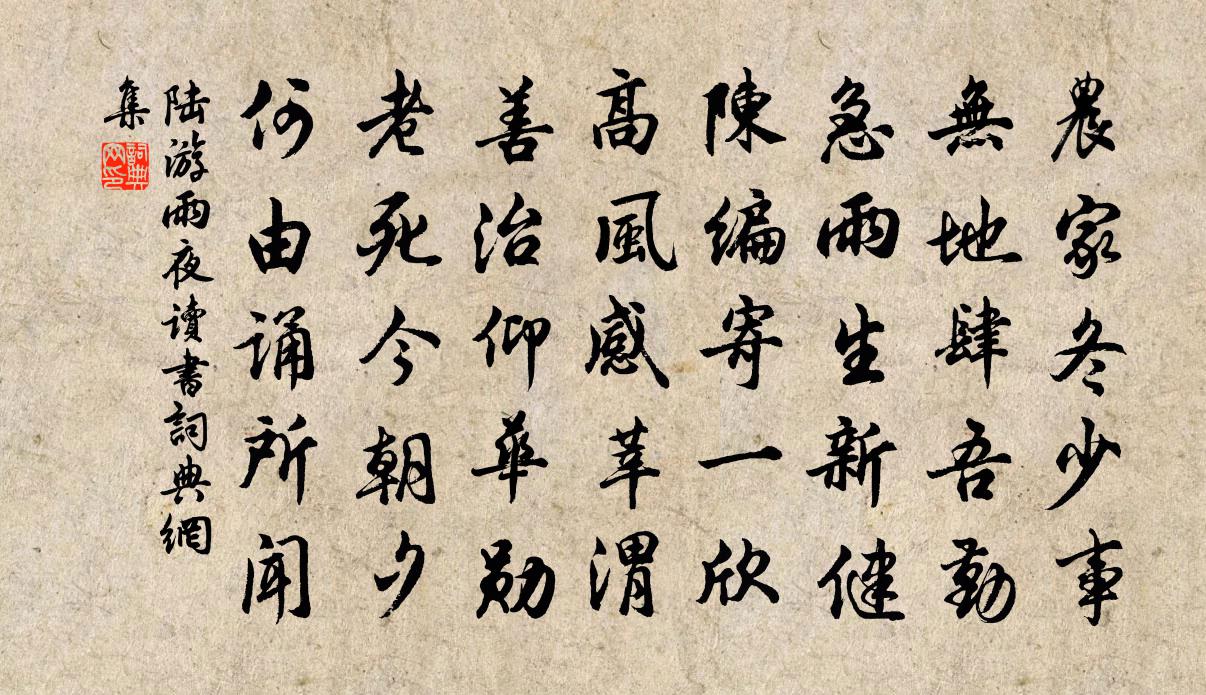 農家冬少事
無地肆吾勤
急雨生新健
陳编寄一欣
高風感莘渭
善治仰華勛
老死今朝夕
何由誦所聞
陆游雨夜讀書詞典網
集
詞典
网印